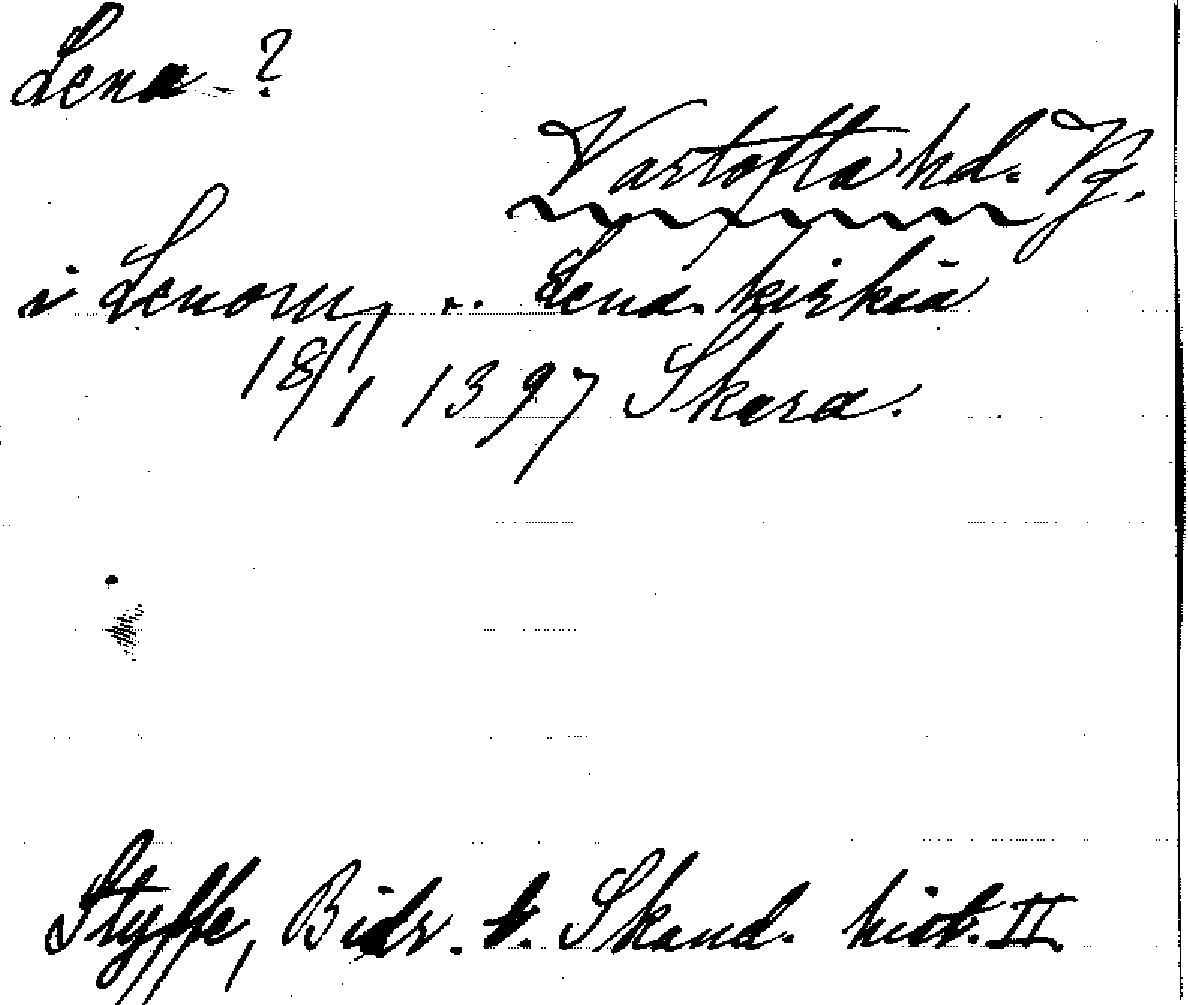 Lena ?
Vartofta hd. Vg.
i Lenom, .. Lena kirkia
18/1 1397 Skara.
Styffe, Bidr. t. Skand. hist. II.